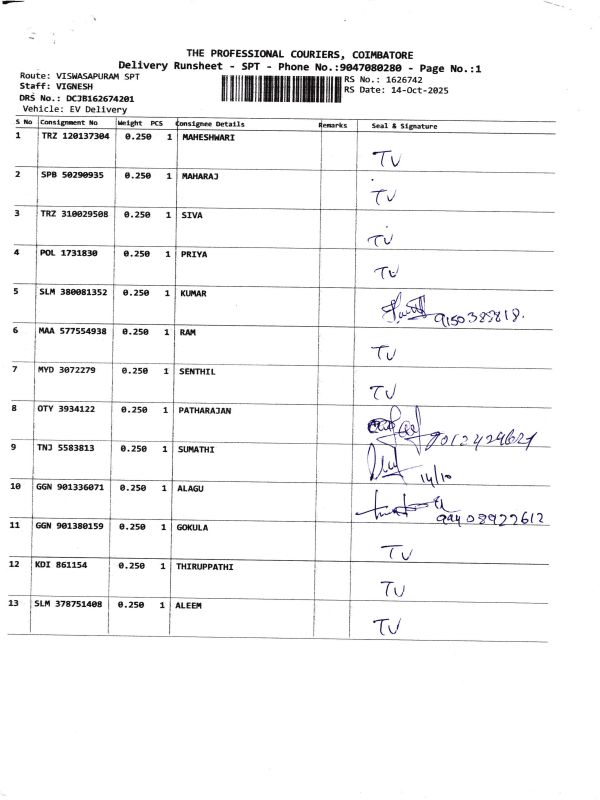 THE PROFESSIONAL COURIERS, COIMBATORE
Delivery Runsheet - SPT - Phone No.:9047080280 - Page No.:1
Route: VISWASAPURAM SPT
RS No.: 1626742
Staff: VIGNESH
RS Date: 14-Oct-2025
DRS No.: DCJB162674201
Vehicle: EV Delivery
S No Consignment No Weight PCS Consignee Details Remarks Seal & Signature
1 TRZ 120137304 0.250 1 MAHESHWARI TU
2 SPB 50290935 0.250 1 MAHARAJ TU
3 TRZ 310029508 0.250 1 SIVA TU
4 POL 1731830 0.250 1 PRIYA TU
5 SLM 380081352 0.250 1 KUMAR
6 MAA 577554938 0.250 1 RAM TU
7 MYD 3072279 0.250 1 SENTHIL TU
8 OTY 3934122 0.250 1 PATHARAJAN
9 TNJ 5583813 0.250 1 SUMATHI 14/10
10 GGN 901336071 0.250 1 ALAGU 99408922612
11 GGN 901380159 0.250 1 GOKULA TU
12 KDI 861154 0.250 1 THIRUPPATHI TU
13 SLM 378751408 0.250 1 ALEEM TU